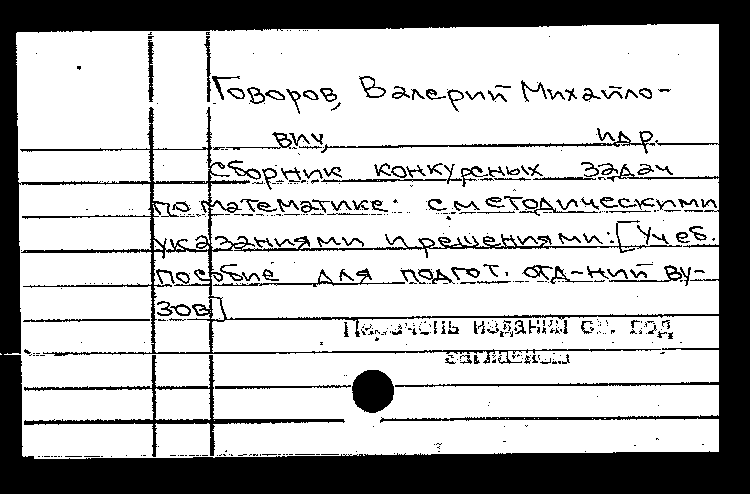 Говоров, Валерий Михайло-
вич, и др.
Сборник конкурсных задач
по математике: с методическими
указаниями и решениями: [Учеб.
пособие для подгот. отд-ний ву-
зов]
Перечень изданий см. под
заглавием